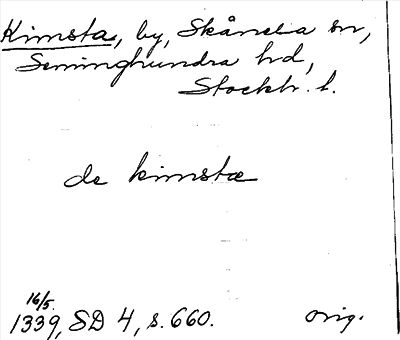 Kimsta, by, Skånela sn,
Seminghundra hd,
Stockh. l.
de kimstæ
16/5.
1339, SD 4, s. 660. orig.